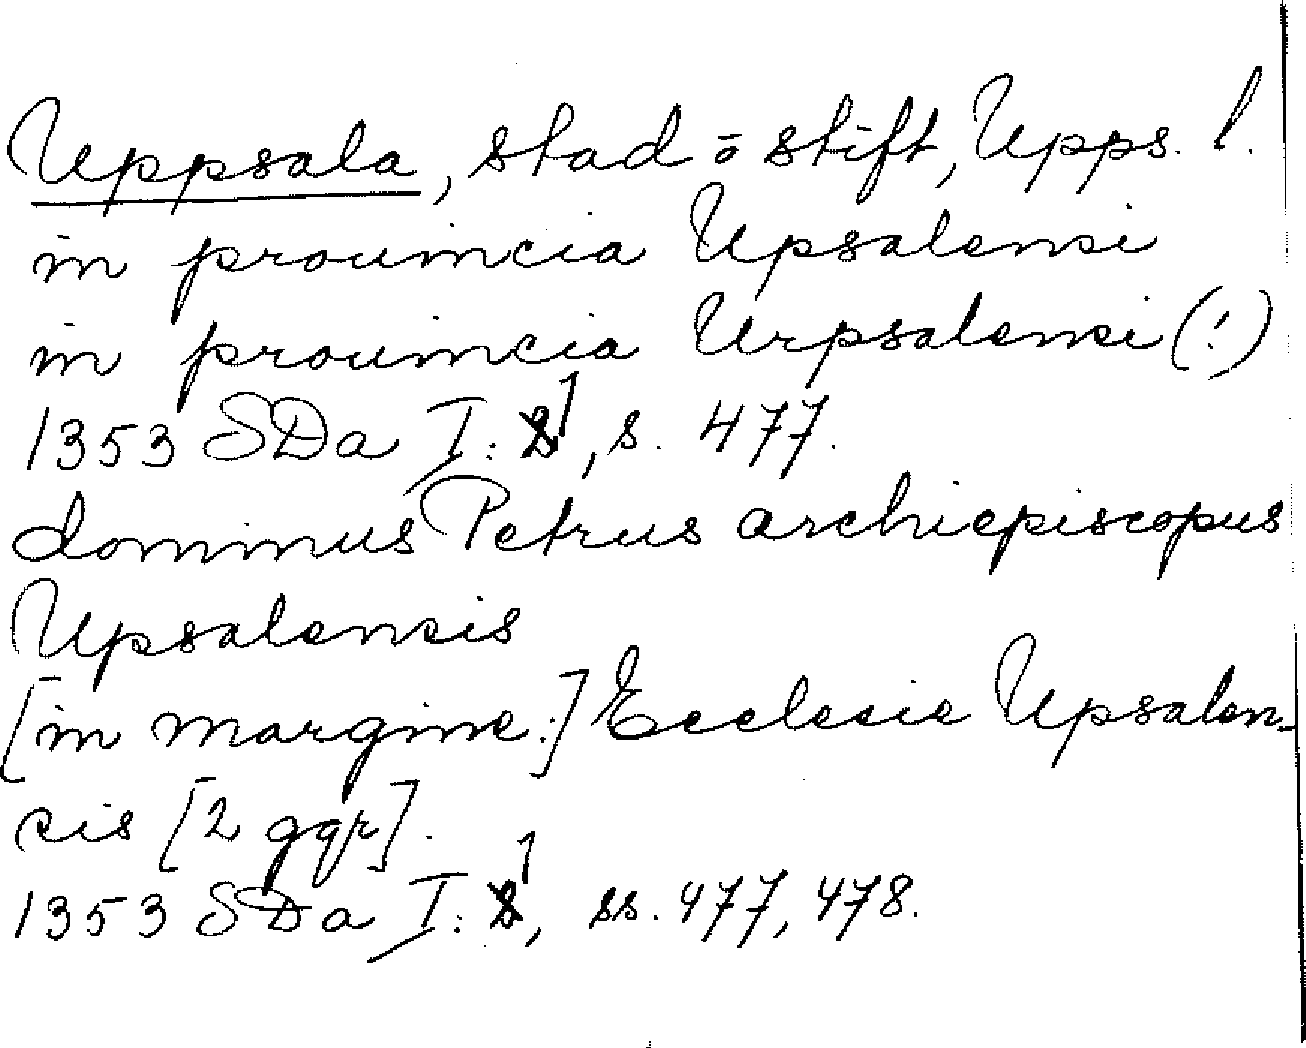 Uppsala, stad o stift, Upps. l.
in prouincia Upsalensi
in prouincia Urpsalensi (!)
1353 SDa I: 1, s. 477.
dominus Petrus archiepiscopus
Upsalensis
[in margine:] Ecclesie Upsalen-
sis [2 ggr].
1353 SDa I: 1, ss. 477, 478.